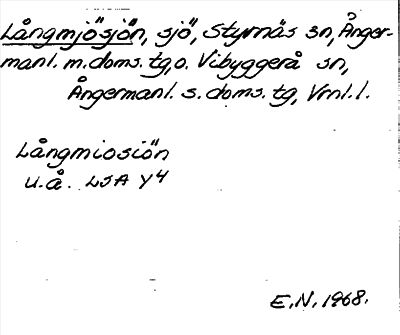 Långmjösjön, sjö, Styrnäs sn, Ånger-
manl. m. doms. tg, o. Vibyggerå sn,
Ångermanl. s. doms. tg, Vrnl. l.
Långmiosiön
u.å. LSA Y4
E.N. 1968.